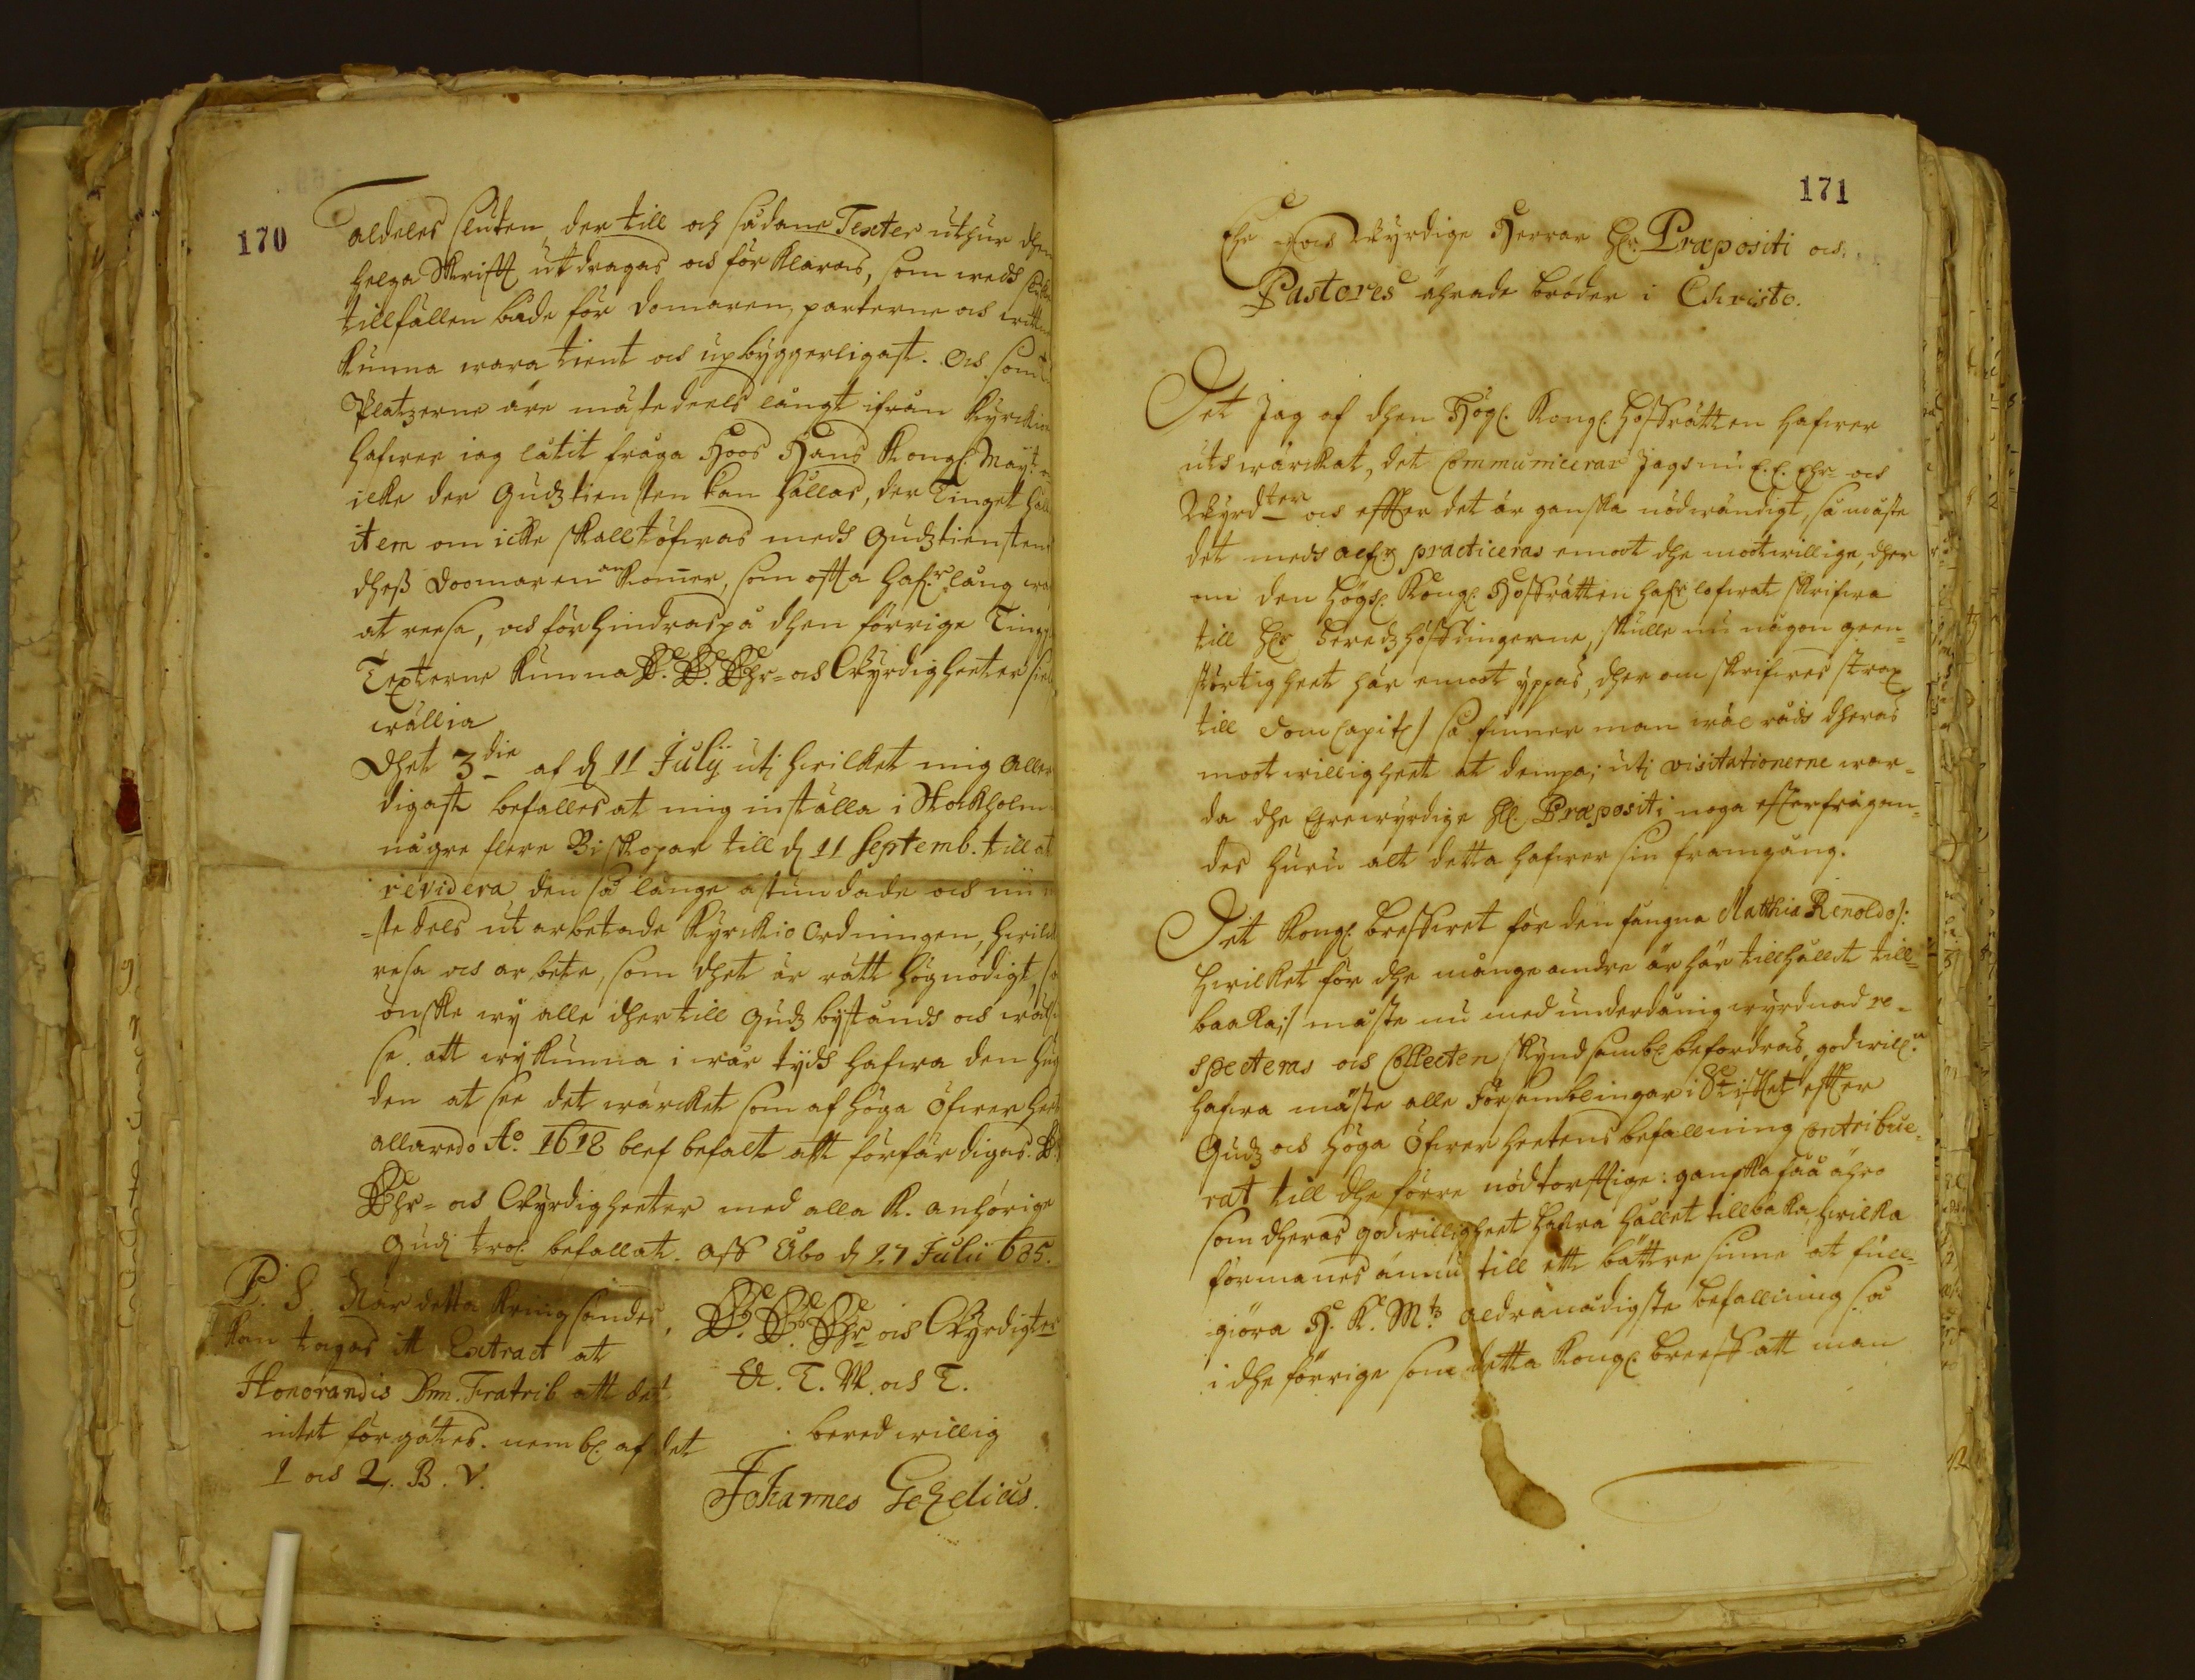 170
aldeles sluten der till och sådane Texter uthur dhen
helga Skrifft utdragas och förklaras, som wedh
tillfällen både för domaren, parterne och
kunna wara tient och upbyggerligast. och som
Platzerne äre mästedeels långt ifrån kyrckio
hafwer iag låtit fråga hoos Hans Kongl. Mayt:
icke der Gudztiensten kan hållas, der Tinget
item om icke skall töfwas medh Gudztiensten
dhess doomaren an komer, som offta hafr lång
at reesa, och förhindras på dhen förrige
Texterne kunna E. E. Ehr- och Wyrdigheeter
wällia
Dhet 3die af d 11 Julij uti hwilket mig
digast befalles at mig inställa i Stockholm
någre flere Biskopar till d 11 Septemb. till at
revidera den så länge åstundade och nu
-stedels utarbetade Kyrckio Ordningen,
resa och arbete, som dhet är rätt högnödigt,
önske wy alle dhertill Gudz bystånd och
se. att wy kunna i wår tydh hafwa den
den at see det wärcket som af höga Öfwer
allaredo Ao. 1618 blef befalt att förfärdigas. E.
Ehr- och Wyrdigheeter med alla K. anhörige
Gudi trol. befallat. aff Åbo d 17 Julii 685.
P. S. När detta kringsändes,
kan tagas itt Extract at
Honorandis Dnn. Fratrib. att det
intet förgätes. nembl. af det
1 och 2. B. V.
E. E. Ehr och Wyrdigter
T. W. och T.
beredwillig
Johannes Gezelius.
171
Ehr- och Wyrdige Herrar Hr. Præpositi och
Pastores ährade bröder i Christo.
Det Jag af dhen Högl. Kongl. Hoffrätten hafwer
uthwärckat, det Communicerar Jagh nu E. E. Ehr- och
Wyrdter och effter det är ganska nödwändigt, så måste
det medh alf.r practiceras emoot dhe mootwillige, dher
om den högl. Kongl. Hoffrätten hafr lofwat skrifwa
till Hr Heredzhöffdingerne, skulle nu någon geen-
störtigheet här emoot yppas, dher om skrifwes strax
till DomCapitl / så finner man wäl rådh dheras
mootwilligheet at dempa; uti visitationerne war-
da dhe Ehrewyrdige Hl. Præpositi noga effterfrågan-
des huru alt detta hafwer sin framgång.
Det Kongl. breffwet för den fångna Matthia Renoldo/:
hwilket för dhe månge andre är här till hållit till-
baaka:/ måste nu med underdånig wyrdnad re-
specteras och Collecten skyndsambl. befordras, godwill.n
hafwa måste alle Församblingar i Stichtet effter
Gudz och höga Öfwerheetens befallning contribue-
rat till dhe förre nödtorfftige: ganska fåå ähro
som dheras godwilligheet hafwa hållet tillbaka, hwilka
förmanes ännu till ett bättre sinne at full-
giöra H. K. M:tz aldranådigste befallning så
i dhe förrige som detta Kongl. breeff att man